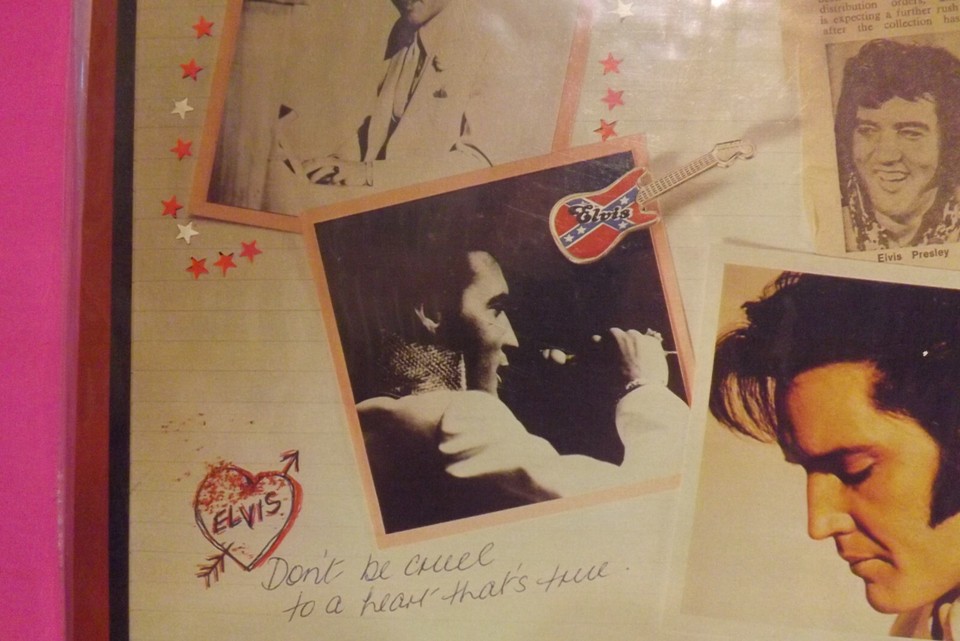 distribution orders,
is expecting a further rush
after the collection has
Elvis
Elvis Presley
ELVIS
Don't be cruel
to a heart that's true.